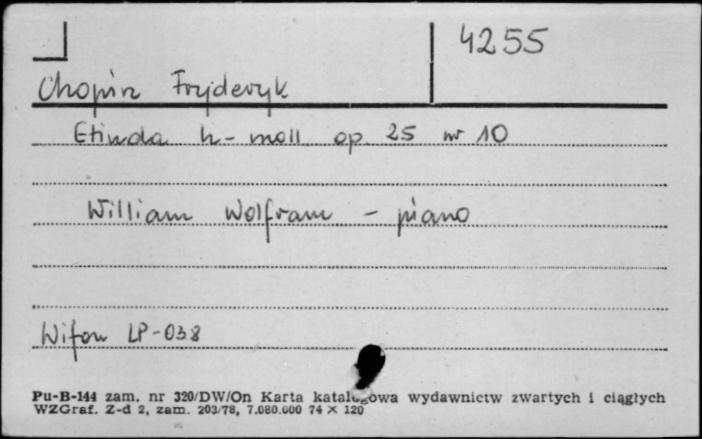 4255
Chopin Fryderyk
Etiuda h-moll op. 25 nr 10
William Wolfram - piano
Wifon LP-038
Pu-B-144 zam. nr 320/DW/On Karta katalogowa wydawnictw zwartych i ciągłych
WZGraf. Z-d 2, zam. 203/78, 7.080.000 74 × 120